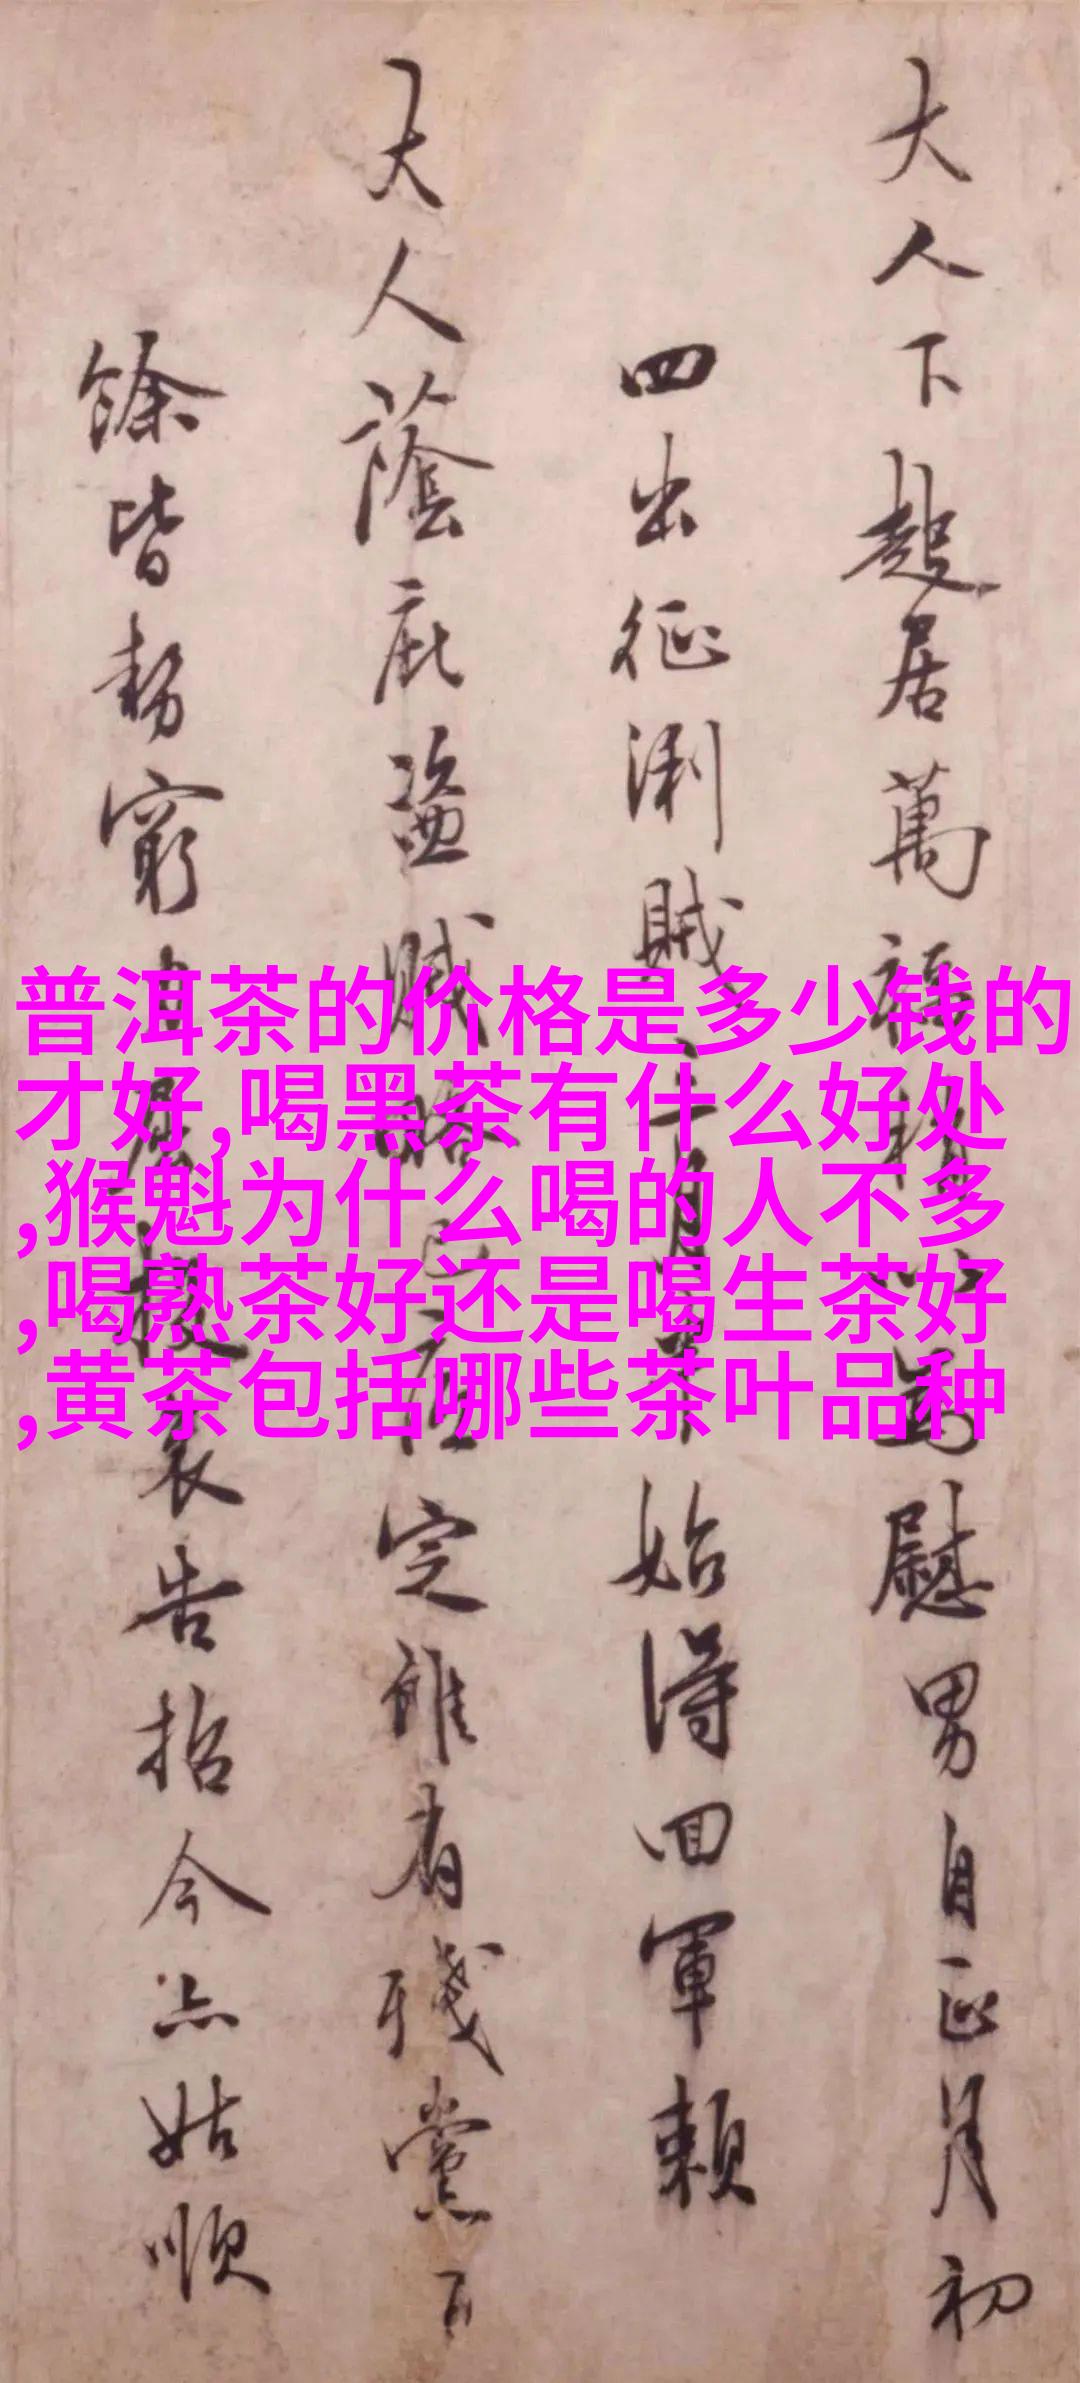 大人下趍居萬福
慰男自正月初
四出征淛賊
始得回軍賴
大人蔭庇盗賊
定雖有殘黨百
餘皆勢窮自
告招今亦姑順
普洱茶的价格是多少钱的
才好,喝黑茶有什么好处
,猴魁为什么喝的人不多
,喝熟茶好还是喝生茶好
,黄茶包括哪些茶叶品种